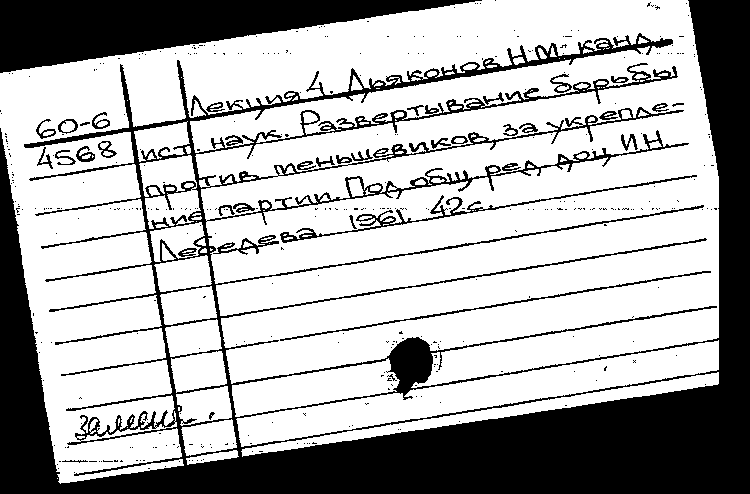 Лекция 4. Дьяконов Н.М., канд.
60-6
4568 ист. наук. Развертывание борьбы
против меньшевиков, за укрепле-
ние партии. Под общ. ред. доц. И.Н.
Лебедева. 1961. 42с.